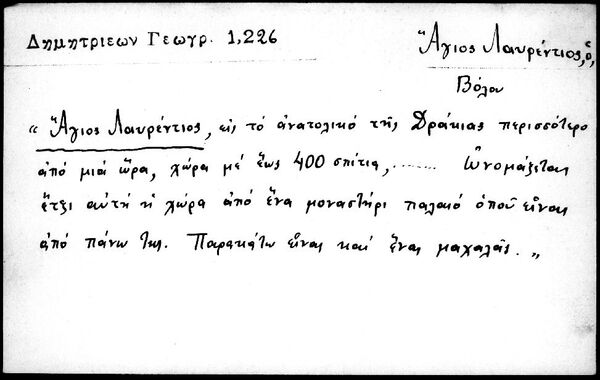 Δημητριεων Γεωγρ. 1,226
Ἅγιος Λαυρέντιος, ὁ,
Βόλου
"Ἅγιος Λαυρέντιος, εἰς τό ἀνατολικό τῆς Δράκιας περισσότερο
ἀπό μιά ὥρα, χώρα μέ ἕως 400 σπίτια, ....... Ὠνομάζεται
ἔτζι αὐτή ἡ χώρα ἀπό ἕνα μοναστήρι παλαιό ὁποῦ εἶναι
ἀπό πάνω της. Παρακάτω εἶναι καί ἕνας μαχαλᾶς."